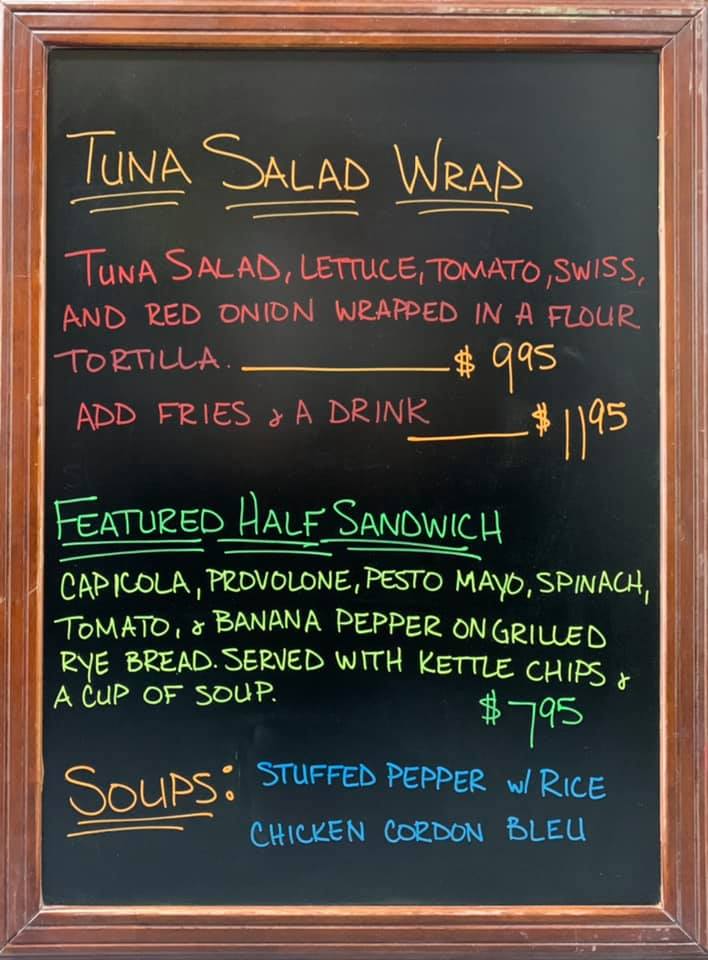 TUNA SALAD WRAP
TUNA SALAD, LETTUCE, TOMATO, SWISS,
AND RED ONION WRAPPED IN A FLOUR
TORTILLA. $ 995
ADD FRIES & A DRINK $ 1195
FEATURED HALF SANDWICH
CAPICOLA, PROVOLONE, PESTO MAYO, SPINACH,
TOMATO, & BANANA PEPPER ON GRILLED
RYE BREAD. SERVED WITH KETTLE CHIPS &
A CUP OF SOUP. $ 795
SOUPS: STUFFED PEPPER w/ RICE
CHICKEN CORDON BLEU